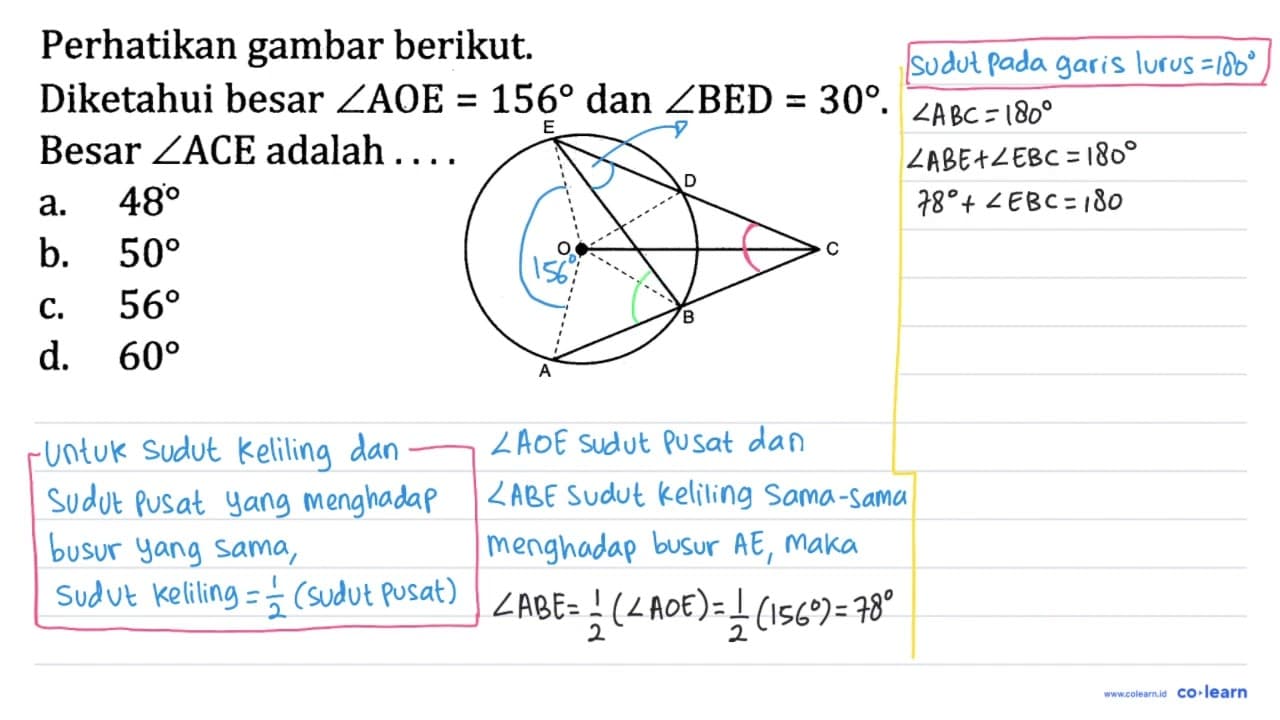 Perhatikan gambar berikut.
Diketahui besar ∠AOE = 156° dan ∠BED = 30°.
Besar ∠ACE adalah . . . .
a. 48°
b. 50°
c. 56°
d. 60°
E
D
O
C
156°
B
A
Sudut pada garis lurus = 180°
∠ABC = 180°
∠ABE + ∠EBC = 180°
78° + ∠EBC = 180
Untuk sudut keliling dan
sudut pusat yang menghadap
busur yang sama,
sudut keliling = 1/2 (sudut pusat)
∠AOE sudut pusat dan
∠ABE sudut keliling sama-sama
menghadap busur AE, maka
∠ABE = 1/2 (∠AOE) = 1/2 (156°) = 78°
www.colearn.id co·learn